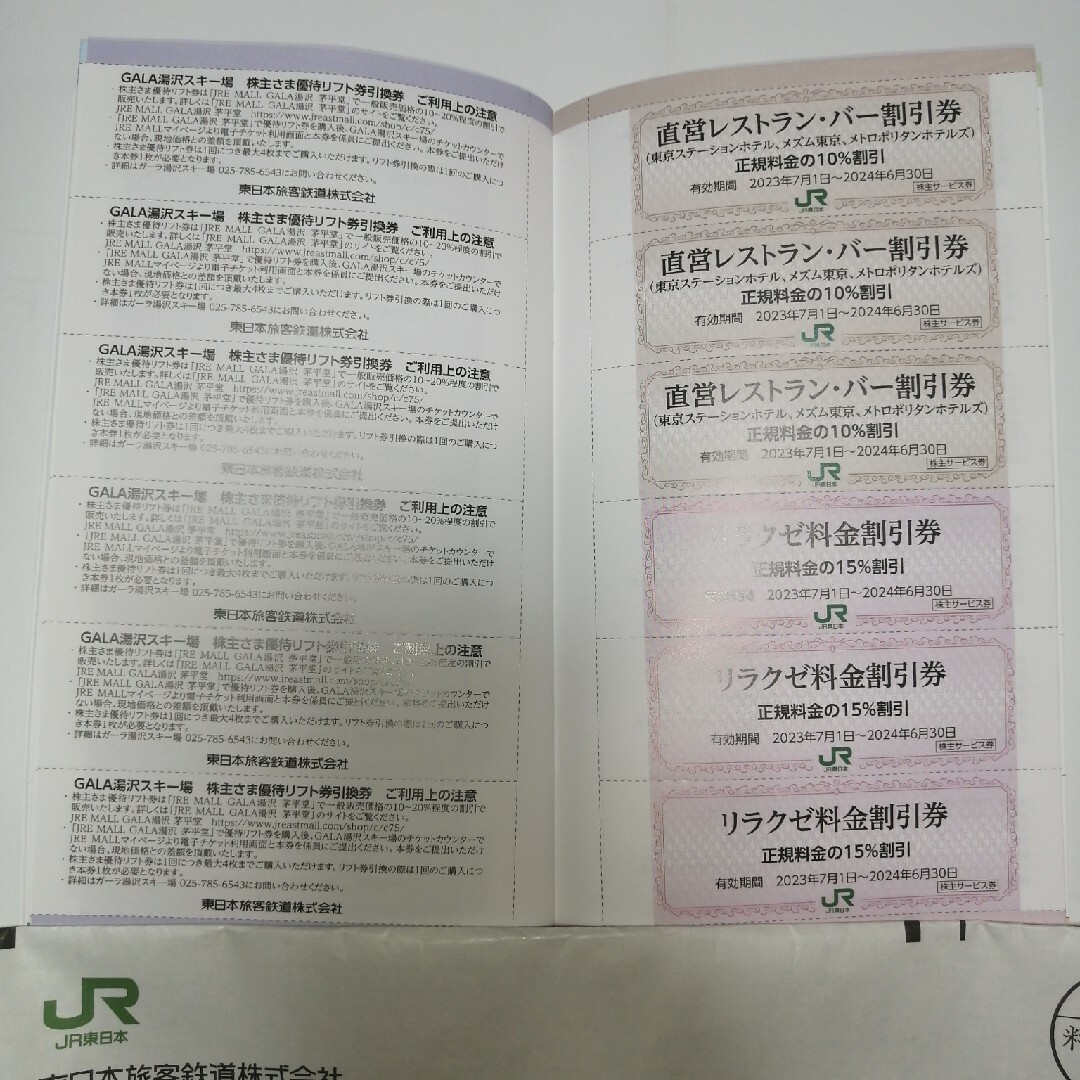 GALA湯沢スキー場 株主さま優待リフト券引換券 ご利用上の注意
・株主さま優待リフト券は「JRE MALL GALA湯沢 茅平堂」で一般販売価格の10~20%程度の割引で
販売いたします。詳しくは「JRE MALL GALA湯沢 茅平堂」のサイトをご覧ください。
JRE MALL GALA湯沢 茅平堂 https://www.jreastmall.com/shop/c/c75/
・「JRE MALL GALA湯沢 茅平堂」で優待リフト券を購入後、GALA湯沢スキー場のチケットカウンターで
JRE MALLマイページより電子チケット利用画面と本券を係員にご提出ください。本券をご提出いただけ
ない場合、現地価格との差額を頂戴いたします。
・株主さま優待リフト券は1回につき最大4枚までご購入いただけます。リフト券引換の際は1回のご購入につ
き本券1枚が必要となります。
・詳細はガーラ湯沢スキー場 025-785-6543にお問い合わせください。
東日本旅客鉄道株式会社
GALA湯沢スキー場 株主さま優待リフト券引換券 ご利用上の注意
・株主さま優待リフト券は「JRE MALL GALA湯沢 茅平堂」で一般販売価格の10~20%程度の割引で
販売いたします。詳しくは「JRE MALL GALA湯沢 茅平堂」のサイトをご覧ください。
JRE MALL GALA湯沢 茅平堂 https://www.jreastmall.com/shop/c/c75/
・「JRE MALL GALA湯沢 茅平堂」で優待リフト券を購入後、GALA湯沢スキー場のチケットカウンターで
JRE MALLマイページより電子チケット利用画面と本券を係員にご提出ください。本券をご提出いただけ
ない場合、現地価格との差額を頂戴いたします。
・株主さま優待リフト券は1回につき最大4枚までご購入いただけます。リフト券引換の際は1回のご購入につ
き本券1枚が必要となります。
・詳細はガーラ湯沢スキー場 025-785-6543にお問い合わせください。
東日本旅客鉄道株式会社
GALA湯沢スキー場 株主さま優待リフト券引換券 ご利用上の注意
・株主さま優待リフト券は「JRE MALL GALA湯沢 茅平堂」で一般販売価格の10~20%程度の割引で
販売いたします。詳しくは「JRE MALL GALA湯沢 茅平堂」のサイトをご覧ください。
JRE MALL GALA湯沢 茅平堂 https://www.jreastmall.com/shop/c/c75/
・「JRE MALL GALA湯沢 茅平堂」で優待リフト券を購入後、GALA湯沢スキー場のチケットカウンターで
JRE MALLマイページより電子チケット利用画面と本券を係員にご提出ください。本券をご提出いただけ
ない場合、現地価格との差額を頂戴いたします。
・株主さま優待リフト券は1回につき最大4枚までご購入いただけます。リフト券引換の際は1回のご購入につ
き本券1枚が必要となります。
・詳細はガーラ湯沢スキー場 025-785-6543にお問い合わせください。
東日本旅客鉄道株式会社
GALA湯沢スキー場 株主さま優待リフト券引換券 ご利用上の注意
・株主さま優待リフト券は「JRE MALL GALA湯沢 茅平堂」で一般販売価格の10~20%程度の割引で
販売いたします。詳しくは「JRE MALL GALA湯沢 茅平堂」のサイトをご覧ください。
JRE MALL GALA湯沢 茅平堂 https://www.jreastmall.com/shop/c/c75/
・「JRE MALL GALA湯沢 茅平堂」で優待リフト券を購入後、GALA湯沢スキー場のチケットカウンターで
JRE MALLマイページより電子チケット利用画面と本券を係員にご提出ください。本券をご提出いただけ
ない場合、現地価格との差額を頂戴いたします。
・株主さま優待リフト券は1回につき最大4枚までご購入いただけます。リフト券引換の際は1回のご購入につ
き本券1枚が必要となります。
・詳細はガーラ湯沢スキー場 025-785-6543にお問い合わせください。
東日本旅客鉄道株式会社
GALA湯沢スキー場 株主さま優待リフト券引換券 ご利用上の注意
・株主さま優待リフト券は「JRE MALL GALA湯沢 茅平堂」で一般販売価格の10~20%程度の割引で
販売いたします。詳しくは「JRE MALL GALA湯沢 茅平堂」のサイトをご覧ください。
JRE MALL GALA湯沢 茅平堂 https://www.jreastmall.com/shop/c/c75/
・「JRE MALL GALA湯沢 茅平堂」で優待リフト券を購入後、GALA湯沢スキー場のチケットカウンターで
JRE MALLマイページより電子チケット利用画面と本券を係員にご提出ください。本券をご提出いただけ
ない場合、現地価格との差額を頂戴いたします。
・株主さま優待リフト券は1回につき最大4枚までご購入いただけます。リフト券引換の際は1回のご購入につ
き本券1枚が必要となります。
・詳細はガーラ湯沢スキー場 025-785-6543にお問い合わせください。
東日本旅客鉄道株式会社
GALA湯沢スキー場 株主さま優待リフト券引換券 ご利用上の注意
・株主さま優待リフト券は「JRE MALL GALA湯沢 茅平堂」で一般販売価格の10~20%程度の割引で
販売いたします。詳しくは「JRE MALL GALA湯沢 茅平堂」のサイトをご覧ください。
JRE MALL GALA湯沢 茅平堂 https://www.jreastmall.com/shop/c/c75/
・「JRE MALL GALA湯沢 茅平堂」で優待リフト券を購入後、GALA湯沢スキー場のチケットカウンターで
JRE MALLマイページより電子チケット利用画面と本券を係員にご提出ください。本券をご提出いただけ
ない場合、現地価格との差額を頂戴いたします。
・株主さま優待リフト券は1回につき最大4枚までご購入いただけます。リフト券引換の際は1回のご購入につ
き本券1枚が必要となります。
・詳細はガーラ湯沢スキー場 025-785-6543にお問い合わせください。
東日本旅客鉄道株式会社
直営レストラン・バー割引券
(東京ステーションホテル、メズム東京、メトロポリタンホテルズ)
正規料金の10%割引
有効期間 2023年7月1日~2024年6月30日
株主サービス券
JR
JR東日本
直営レストラン・バー割引券
(東京ステーションホテル、メズム東京、メトロポリタンホテルズ)
正規料金の10%割引
有効期間 2023年7月1日~2024年6月30日
株主サービス券
JR
JR東日本
直営レストラン・バー割引券
(東京ステーションホテル、メズム東京、メトロポリタンホテルズ)
正規料金の10%割引
有効期間 2023年7月1日~2024年6月30日
株主サービス券
JR
JR東日本
リラクゼ料金割引券
正規料金の15%割引
有効期間 2023年7月1日~2024年6月30日
株主サービス券
JR
JR東日本
リラクゼ料金割引券
正規料金の15%割引
有効期間 2023年7月1日~2024年6月30日
株主サービス券
JR
JR東日本
リラクゼ料金割引券
正規料金の15%割引
有効期間 2023年7月1日~2024年6月30日
株主サービス券
JR
JR東日本
JR
JR東日本
東日本旅客鉄道株式会社
料